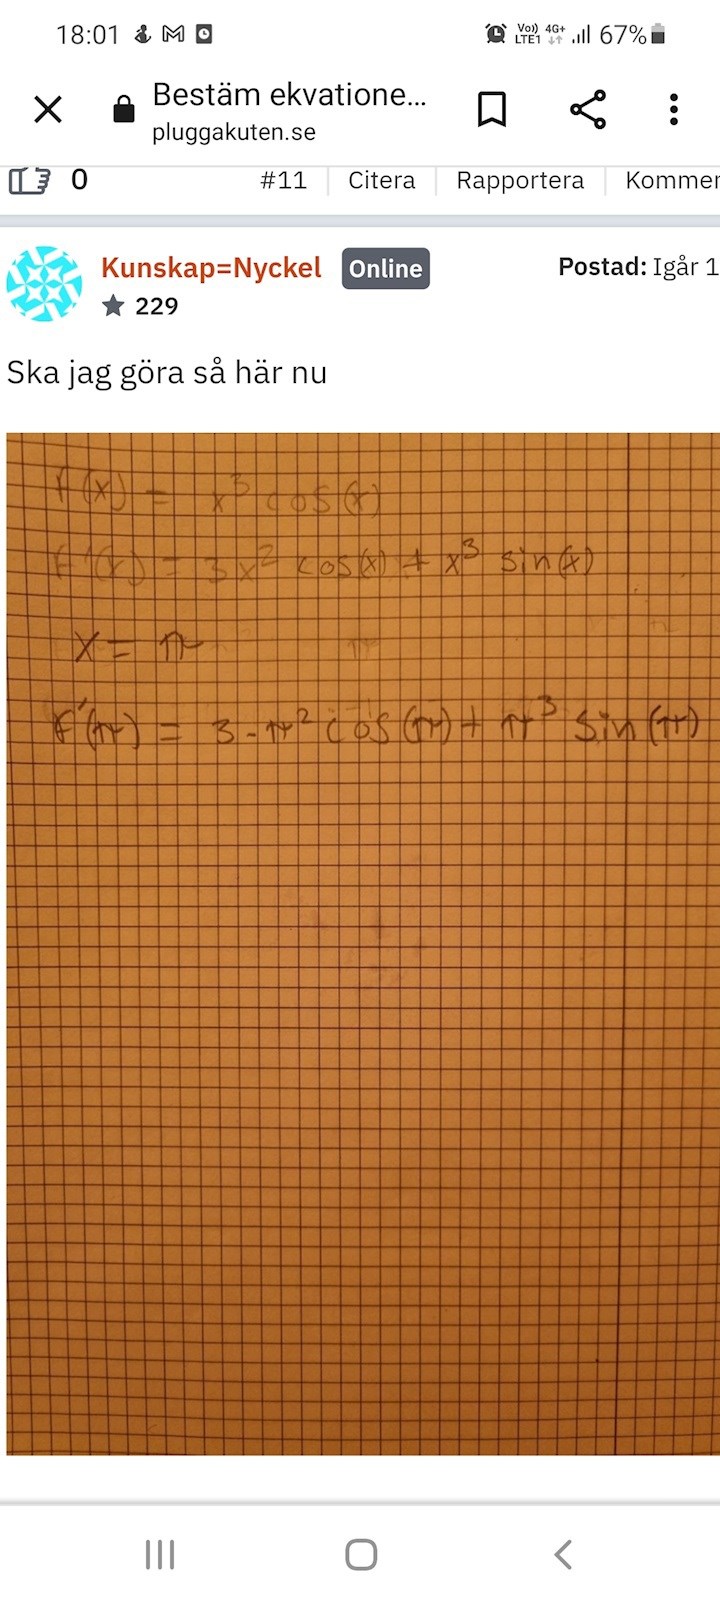 18:01 Vo)) LTE1 4G+ 67%
Bestäm ekvatione...
pluggakuten.se
0 #11 Citera Rapportera Kommer
Kunskap=Nyckel Online Postad: Igår 1
★ 229
Ska jag göra så här nu
f(x) = x³ cos(x)
f'(x) = 3x² cos(x) + x³ sin(x)
x = π
f'(π) = 3·π² cos(π) + π³ sin(π)